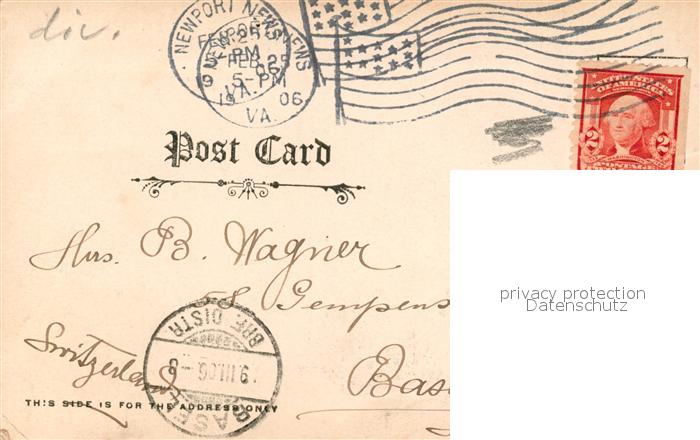 div.
NEWPORT NEWS
FEB 25
5-PM
1906
VA.
UNITED STATES
OF AMERICA
2 2
POSTAGE
Post Card
Mrs. B. Wagner
58 Gempens
privacy protection
Datenschutz
BRF. DISTR
9.III.06.
BASEL
Switzerland
Bas
THIS SIDE IS FOR THE ADDRESS ONLY